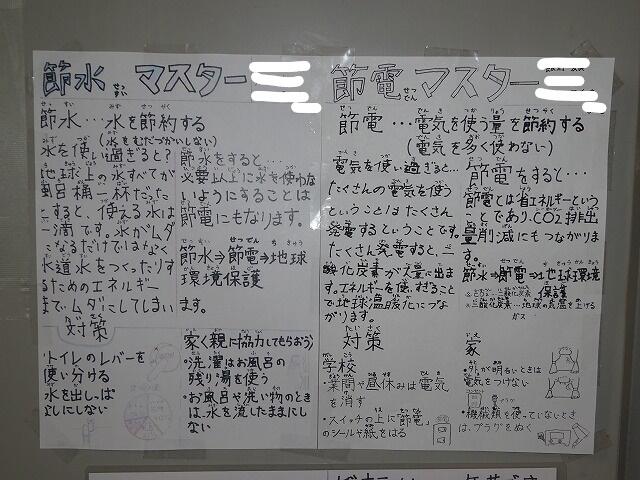 節水 マスター
節水…水を節約する
(水をむだづかいしない)
水を使い過ぎると?
地球上の水すべてが
風呂桶一杯だった
とすると、使える水は
一滴です。水がムダ
になるだけではなく
水道水をつくったりす
るためのエネルギー
までムダにしてしまい
ます。
節水をすると…
必要以上に水を使わな
いようにすることは
節電にもなります。
節水⇒節電⇒地球
環境保護
対策
・トイレのレバーを
使い分ける
水を出しっぱ
なしにしない
家(親に協力してもらおう)
・洗濯はお風呂の
残り湯を使う
・お風呂や洗い物のとき
は、水を流したままにし
ない
節電マスター
節電…電気を使う量を節約する
(電気を多く使わない)
電気を使い過ぎると…
たくさんの電気を使う
ということはたくさん
発電するということです。
たくさん発電すると、二
酸化炭素が大量に出ま
す。エネルギーを使いすぎること
で地球温暖化につな
がります。
節電をすると…
節電とは省エネルギーという
ことであり、CO2排出
量削減にもつながりま
す。
節水⇒節電⇒地球環境
保護
※二酸化炭素…地球の気温を上げる
ガス
対策
学校
・業間や昼休みは電気
を消す
・スイッチの上に「節電」
のシールや紙をはる
家
・外が明るいときは
電気をつけない
・機械類を使っていないとき
は、プラグをぬく